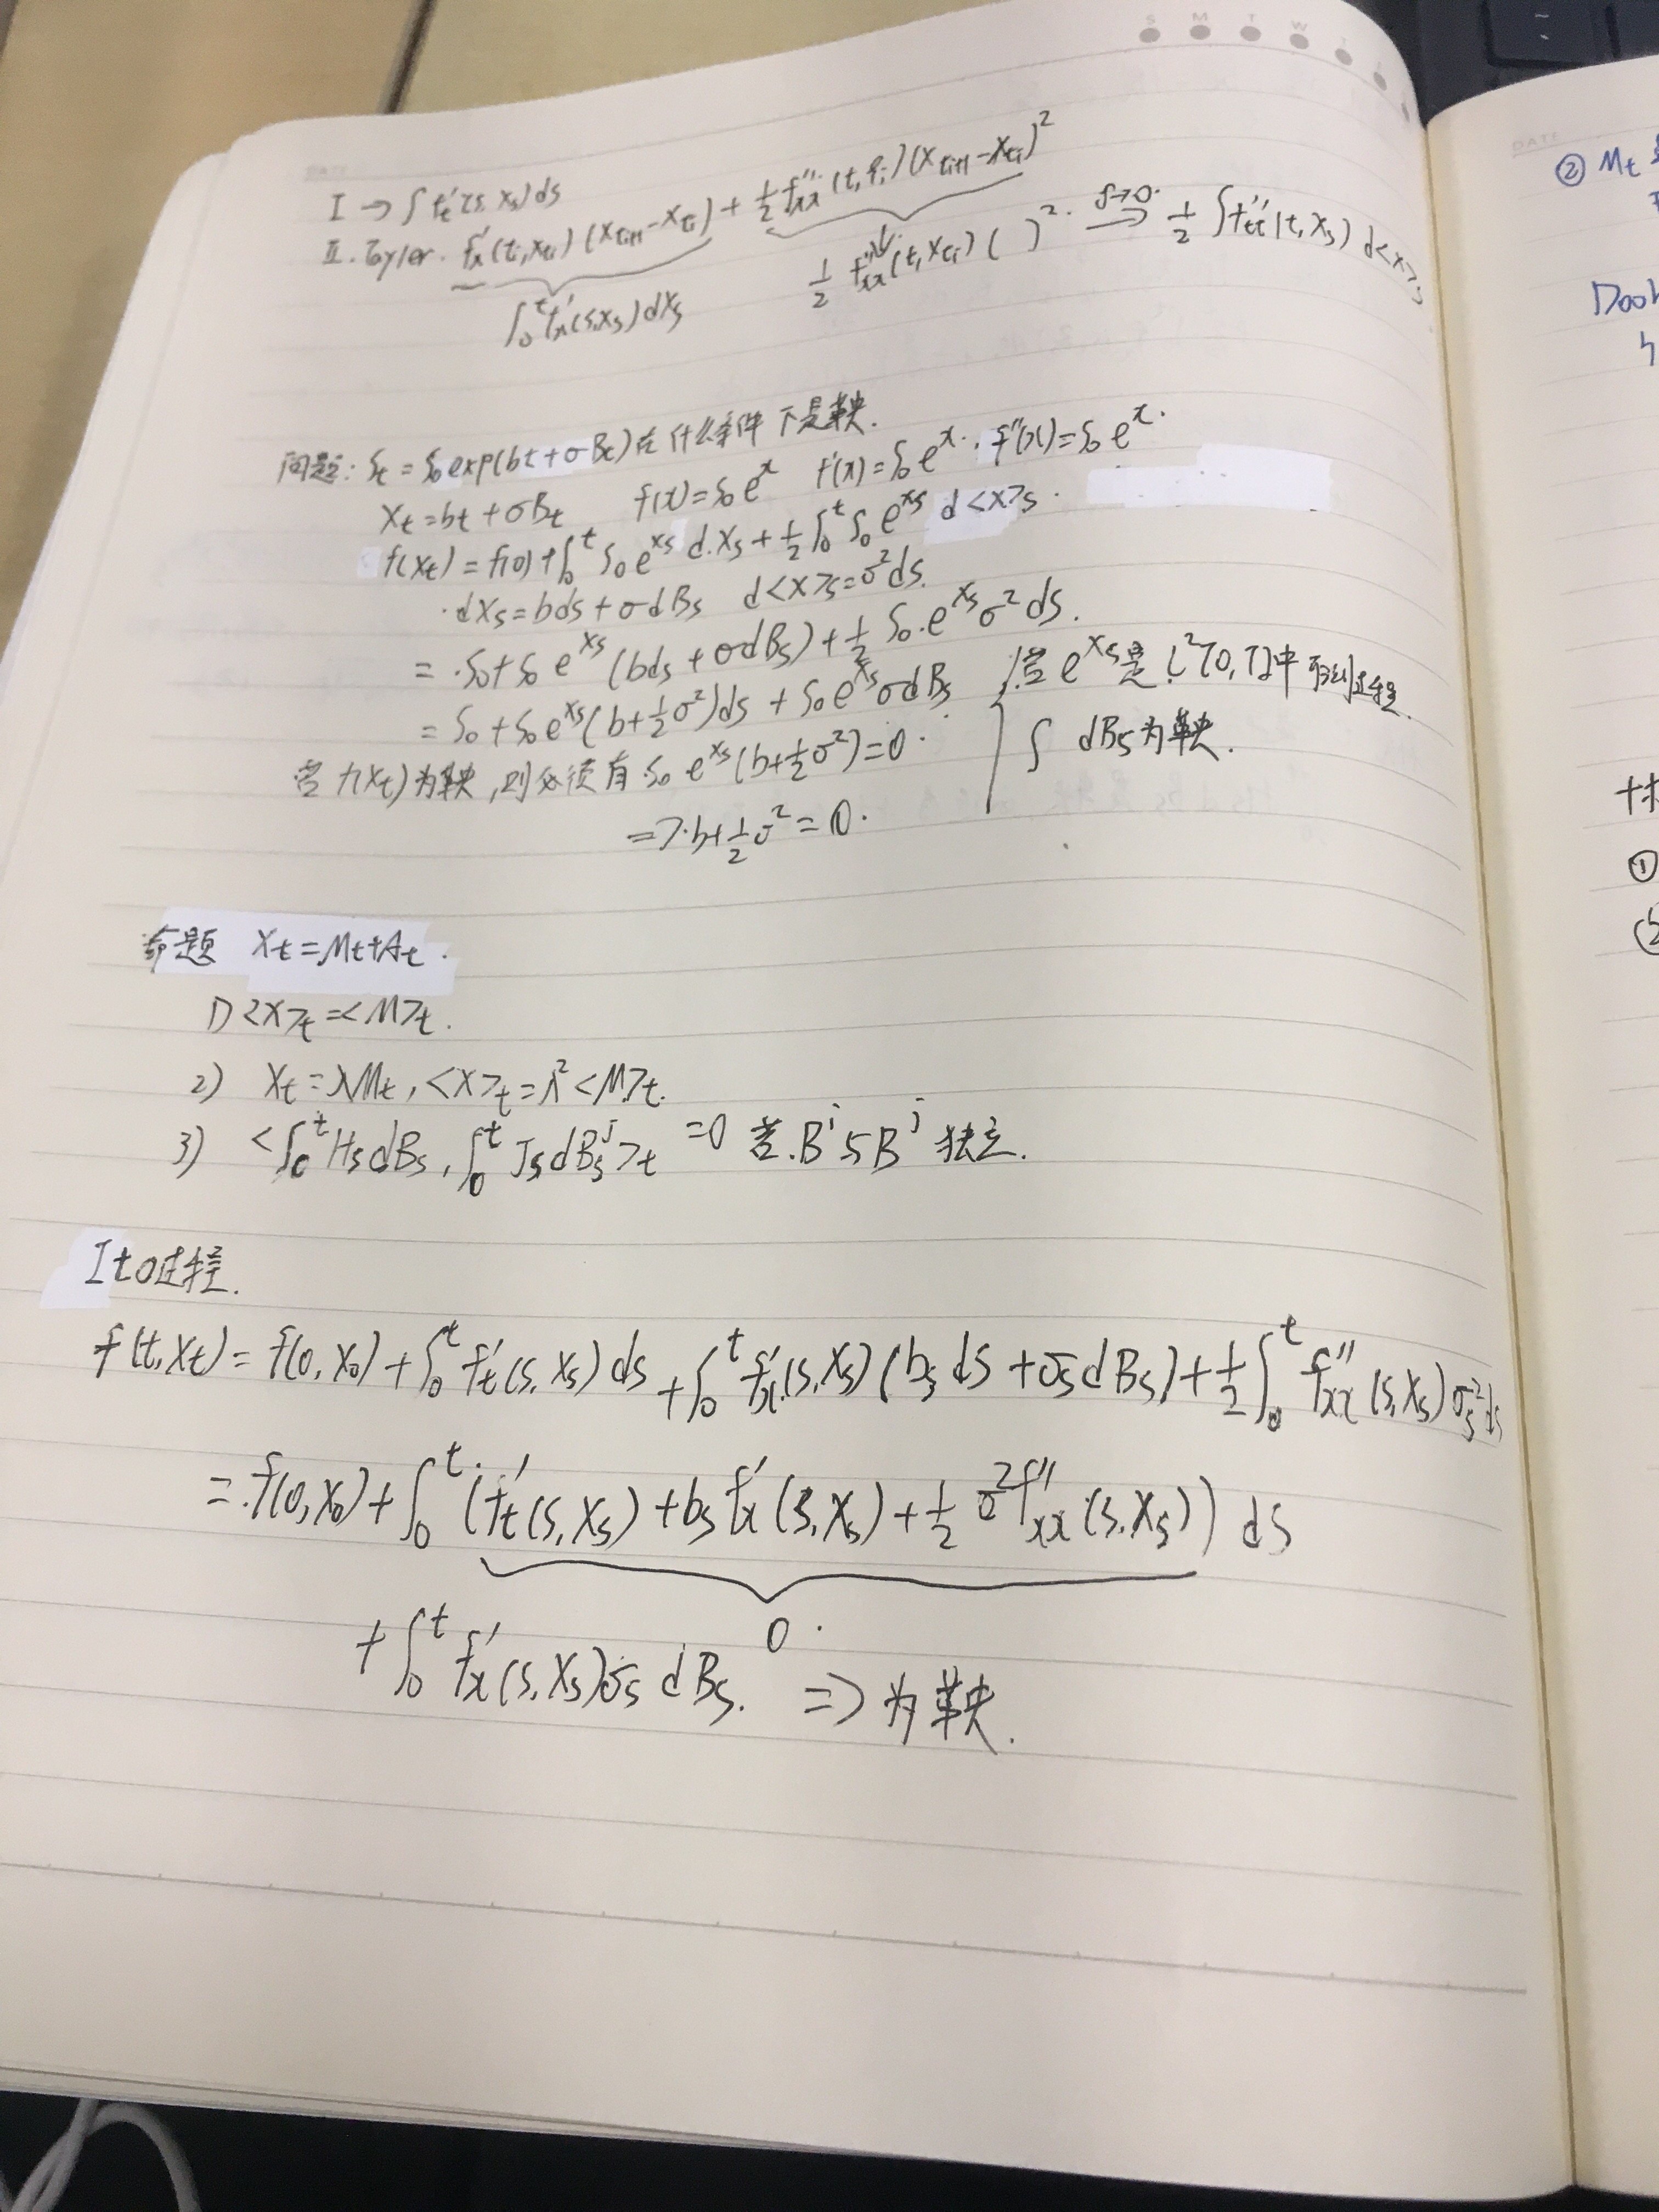 DATE
S M T W T
I → ∫ f't(s, Xs) ds
II. Taylor. f'x(ti, Xti)(Xti+1 - Xti) + 1/2 f''xx(t, ξi)(Xti+1 - Xti)²
∫₀ᵗ f'x(s, Xs) dXs
1/2 f''xx(t, Xti)( )² δ→0 → 1/2 ∫ f''tt(t, Xs) d<X>s
问题: St = S0 exp(bt + σBt) 在什么条件下是鞅.
Xt = bt + σBt f(x) = S0 e^x f'(x) = S0 e^x. f''(x) = S0 e^x.
f(Xt) = f(0) + ∫₀ᵗ S0 e^Xs dXs + 1/2 ∫₀ᵗ S0 e^Xs d<X>s.
dXs = b ds + σ dBs d<X>s = σ² ds.
= S0 + S0 e^Xs (b ds + σ dBs) + 1/2 S0 · e^Xs σ² ds.
= S0 + S0 e^Xs (b + 1/2 σ²) ds + S0 e^Xs σ dBs
若 e^Xs 是 L²[0,T] 中 可测过程.
∫ dBs 为鞅.
若 f(Xt) 为鞅, 则必须有 S0 e^Xs (b + 1/2 σ²) = 0.
=> b + 1/2 σ² = 0.
命题 Xt = Mt + At.
1) <X>t = <M>t.
2) Xt = λMt, <X>t = λ² <M>t.
3) <∫₀ᵗ Hs dBs, ∫₀ᵗ Js dBs^j>t = 0 若. B^i 与 B^j 独立.
Ito过程.
f(t, Xt) = f(0, X0) + ∫₀ᵗ f't(s, Xs) ds + ∫₀ᵗ f'x(s, Xs)(bs ds + σs dBs) + 1/2 ∫₀ᵗ f''xx(s, Xs) σs² ds
= f(0, X0) + ∫₀ᵗ (f't(s, Xs) + bs f'x(s, Xs) + 1/2 σ² f''xx(s, Xs)) ds
0.
+ ∫₀ᵗ f'x(s, Xs) σs dBs. => 为鞅.
DATE
② Mt
①